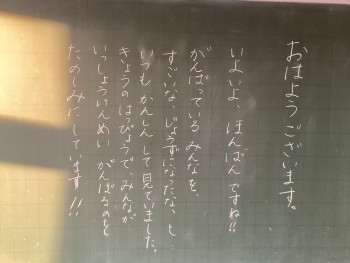 おはようございます。
いよいよ、ほんばんですね!!
がんばっているみんなを、
すごいな、じょうずになったな、と
いつもかんしんして見ていました。
きょうのはっぴょうで、みんなが
いっしょうけんめいがんばるのを
たのしみにしています!!